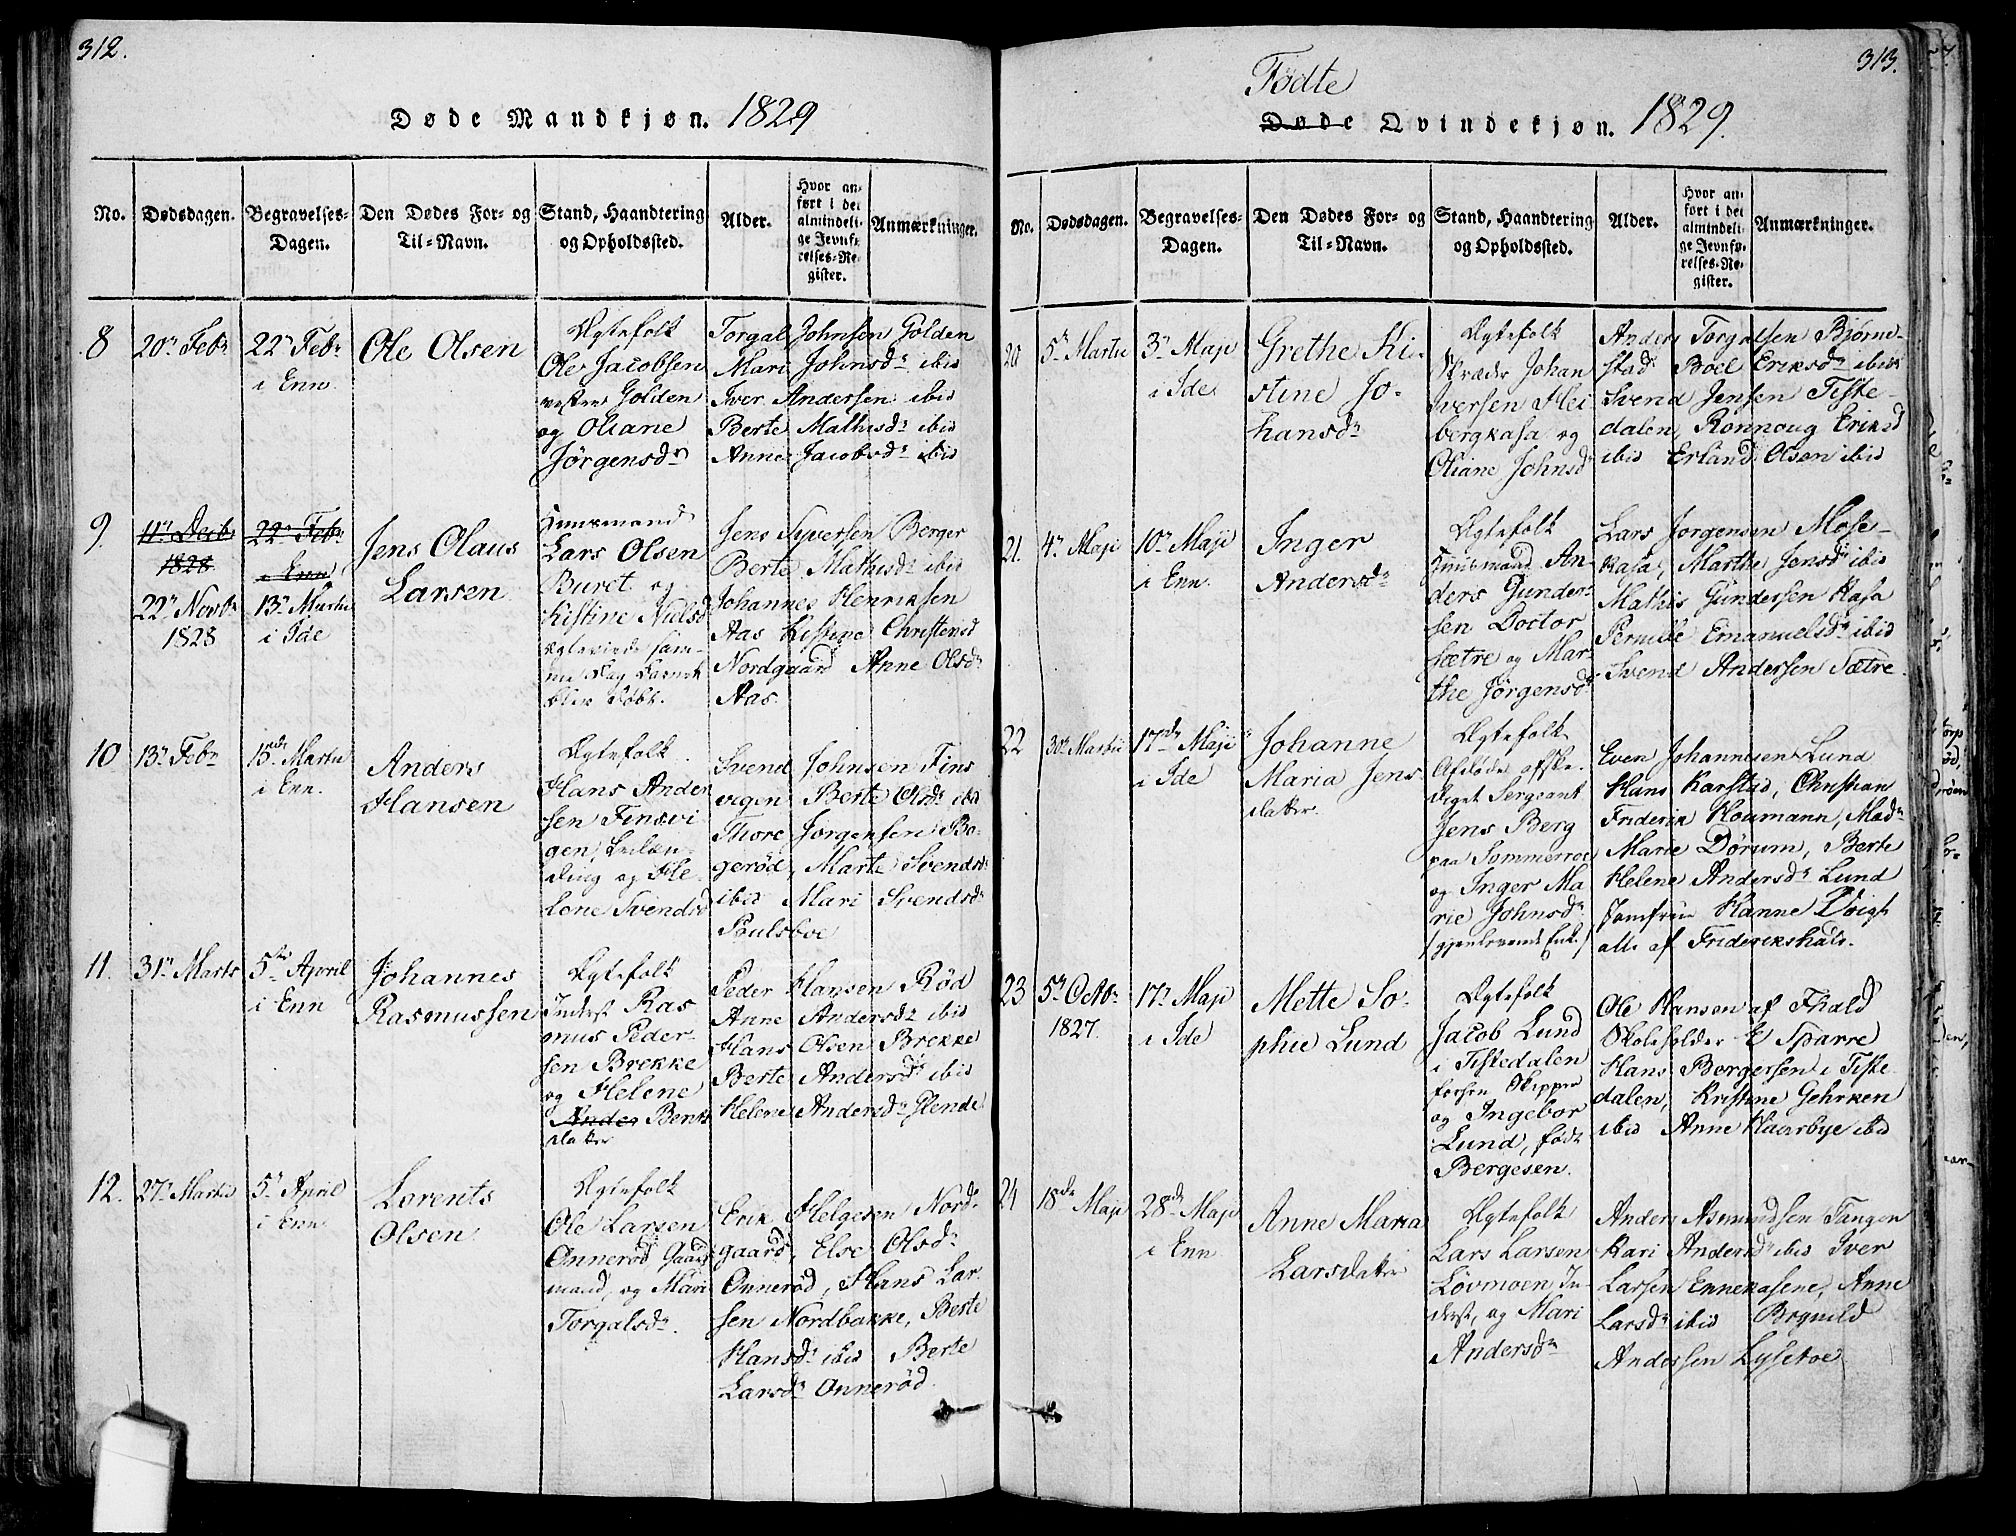 312.
Døde Mandkjøn. 1829
No.
Dødsdagen.
Begravelses-
Dagen.
Den Dødes For- og
Til-Navn.
Stand, Haandtering
og Opholdssted.
Alder.
Hvor an-
ført i det
almindeli-
ge Jevnfø-
relses-Re-
gister.
Anmærkninger.
8
20n Febr
22n Febr
i Enn
Ole Olsen
Ægtefolk
Ole Jacobsen
vestre Golden
og Oliane
Jörgensdr
Torgal Johnsen Golden
Mari Johnsdr ibid
Iver Andersen ibid
Berte Mathisdr ibid
Anne Jacobsdr ibid
9.
11n Decbr
1828
22n Novbr
1828
22n Febr
i Enn
13n Martii
i Ide
Jens Olaus
Larsen
Huusmand
Lars Olsen
Buret og
Kistine Nielsd
Ægteviede sam-
me Dag Barnet
blev døbt.
Jens Syversen Berger
Berte Mathisdr ibid
Johannes Henriksen
Aas Kistine Christensd
Nordgaard Anne Olsdr
Aas.
10
13n Febr
15de Martii
i Enn.
Anders
Hansen
Ægtefolk
Hans Ander
sen Finsvi
gen,
og He-
lene Svendsd
Svend Johnsen Fins
vigen Berte Olsdr ibid
Thore Jörgensen Bø-
geröd, Marte Svendsdr
ibid Mari Svendsdr
Poulsboe
11.
31n Marts
5te April
i Enn
Johannes
Rasmussen
Ægtefolk
Inderst Ras
mus Peder-
sen Brekke
og Helene
Ander Bents
datter
Peder Hansen Röd
Anne Andersdr ibid
Hans Olsen Brekke
Berte Andersdr ibid
Helene Andersdr Hende
12.
27n Martii
5n April
i Enn
Lorents
Olsen
Ægtefolk
Ole Larsen
Onneröd Gaard
mand, og Mari
Torgalsdr.
Erik Helgesen Nord-
gaard, Else Olsdr
Onneröd, Hans Lar
sen Nordbakke, Berte
Hansdr ibid Berte
Larsdr Onneröd.
313.
Födte
Døde Qvindekjøn. 1829.
No.
Dødsdagen.
Begravelses-
Dagen.
Den Dødes For- og
Til-Navn.
Stand, Haandtering
og Opholdssted.
Alder.
Hvor an-
ført i det
almindeli-
ge Jevnfø-
relses-Re-
gister.
Anmærkninger.
20
5n Martii
3n Maji
i Ide
Grethe Ki-
stine Jo-
hansdr
Ægtefolk
Skræder Johan
Iversen Hei
bergkasa og
Oliane Johnsd
Anders Torgalsen Björne-
stad Boel Eriksdr ibid
Svend Jensen Tiste-
dalen, Ronnoug Eriksd
ibid Erland Olsen ibid
21.
4n Maji
10n Maji
i Enn.
Inger
Andersdr
Ægtefolk
Huusmand An-
ders Gunder-
sen Doctor
Sætre og Mar-
the Jörgensdr
Lars Jorgensen Mose-
kasa, Marthe Jensdr ibid
Mathis Gundersen Kasa
Pernille Emanuelsdr ibid
Svend Andersen Sætre.
22
30n Martii
17de Maji
i Ide
Johanne
Maria Jens
datter.
Ægtefolk
Afdøde afske-
diget Sergeant
Jens Berg
paa Sommerroe
og Inger Ma
rie Johnsdr
/gjenlevende Enke/
Even Johannesen Lund
Hans Karstad, Christian
Friderik Houmann, Madr
Marie Dörum, Berte
Helene Andersdr Lund
Jomfrue Hanne Voigt
alle af Friderikshald.
23
5n Octbr
1827.
17n Maji
i Ide
Mette So-
phie Lund
Ægtefolk
Jacob Lund
i Tistedalen
forhen Skipper
og Ingebor
Lund, föd
Bergesen.
Ole Hansen af Fhald
Skoleholder E Sparre
Hans Borgersen i Tiste
dalen, Kristine Gehrken
ibid Anne Haarbye ibid
24
18de Maji
28de Maji
i Enn
Anne Maria
Larsdatter
Ægtefolk
Lars Larsen
Lovmoen In-
derst, og Mari
Andersdr
Anders Asmundsen Tangen
Kari Andersdr ibid Iver
Larsen Ennekasene, Anne
Larsdr ibid Bryild
Andersen Lysetoe